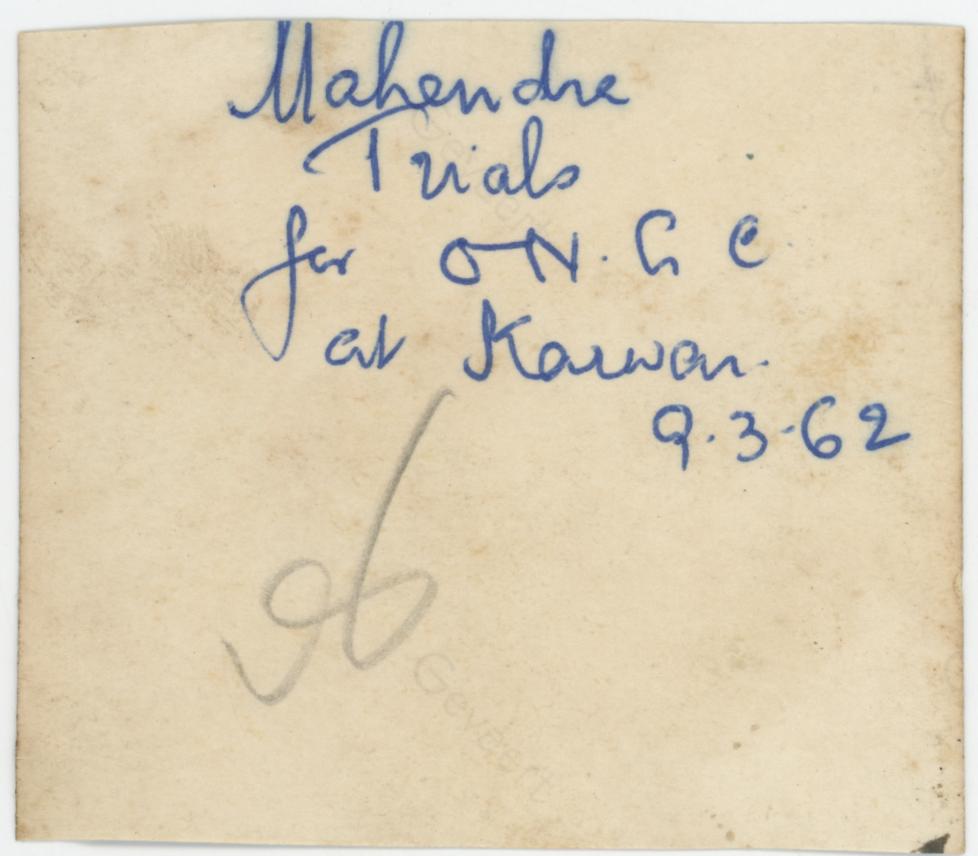 Mahendra
Trials
for O.N.G.C.
at Karwar.
9.3.62
96
Gevaert